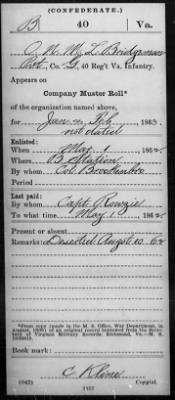 (CONFEDERATE.)
B 40 Va.
Bridgeman
Pvt, Co. G, 40 Reg't Va. Infantry.
Appears on
Company Muster Roll*
of the organization named above,
for Jan & Feb, 1863
not dated
Enlisted:
When May 1, 1862.
Where B. Station
By whom Col Brockenbro
Period
Last paid:
By whom Capt. Rowzie
To what time May 1, 1862.
Present or absent
Remarks: Deserted Augst 10 62
Book mark:
C Kline
Copyist.